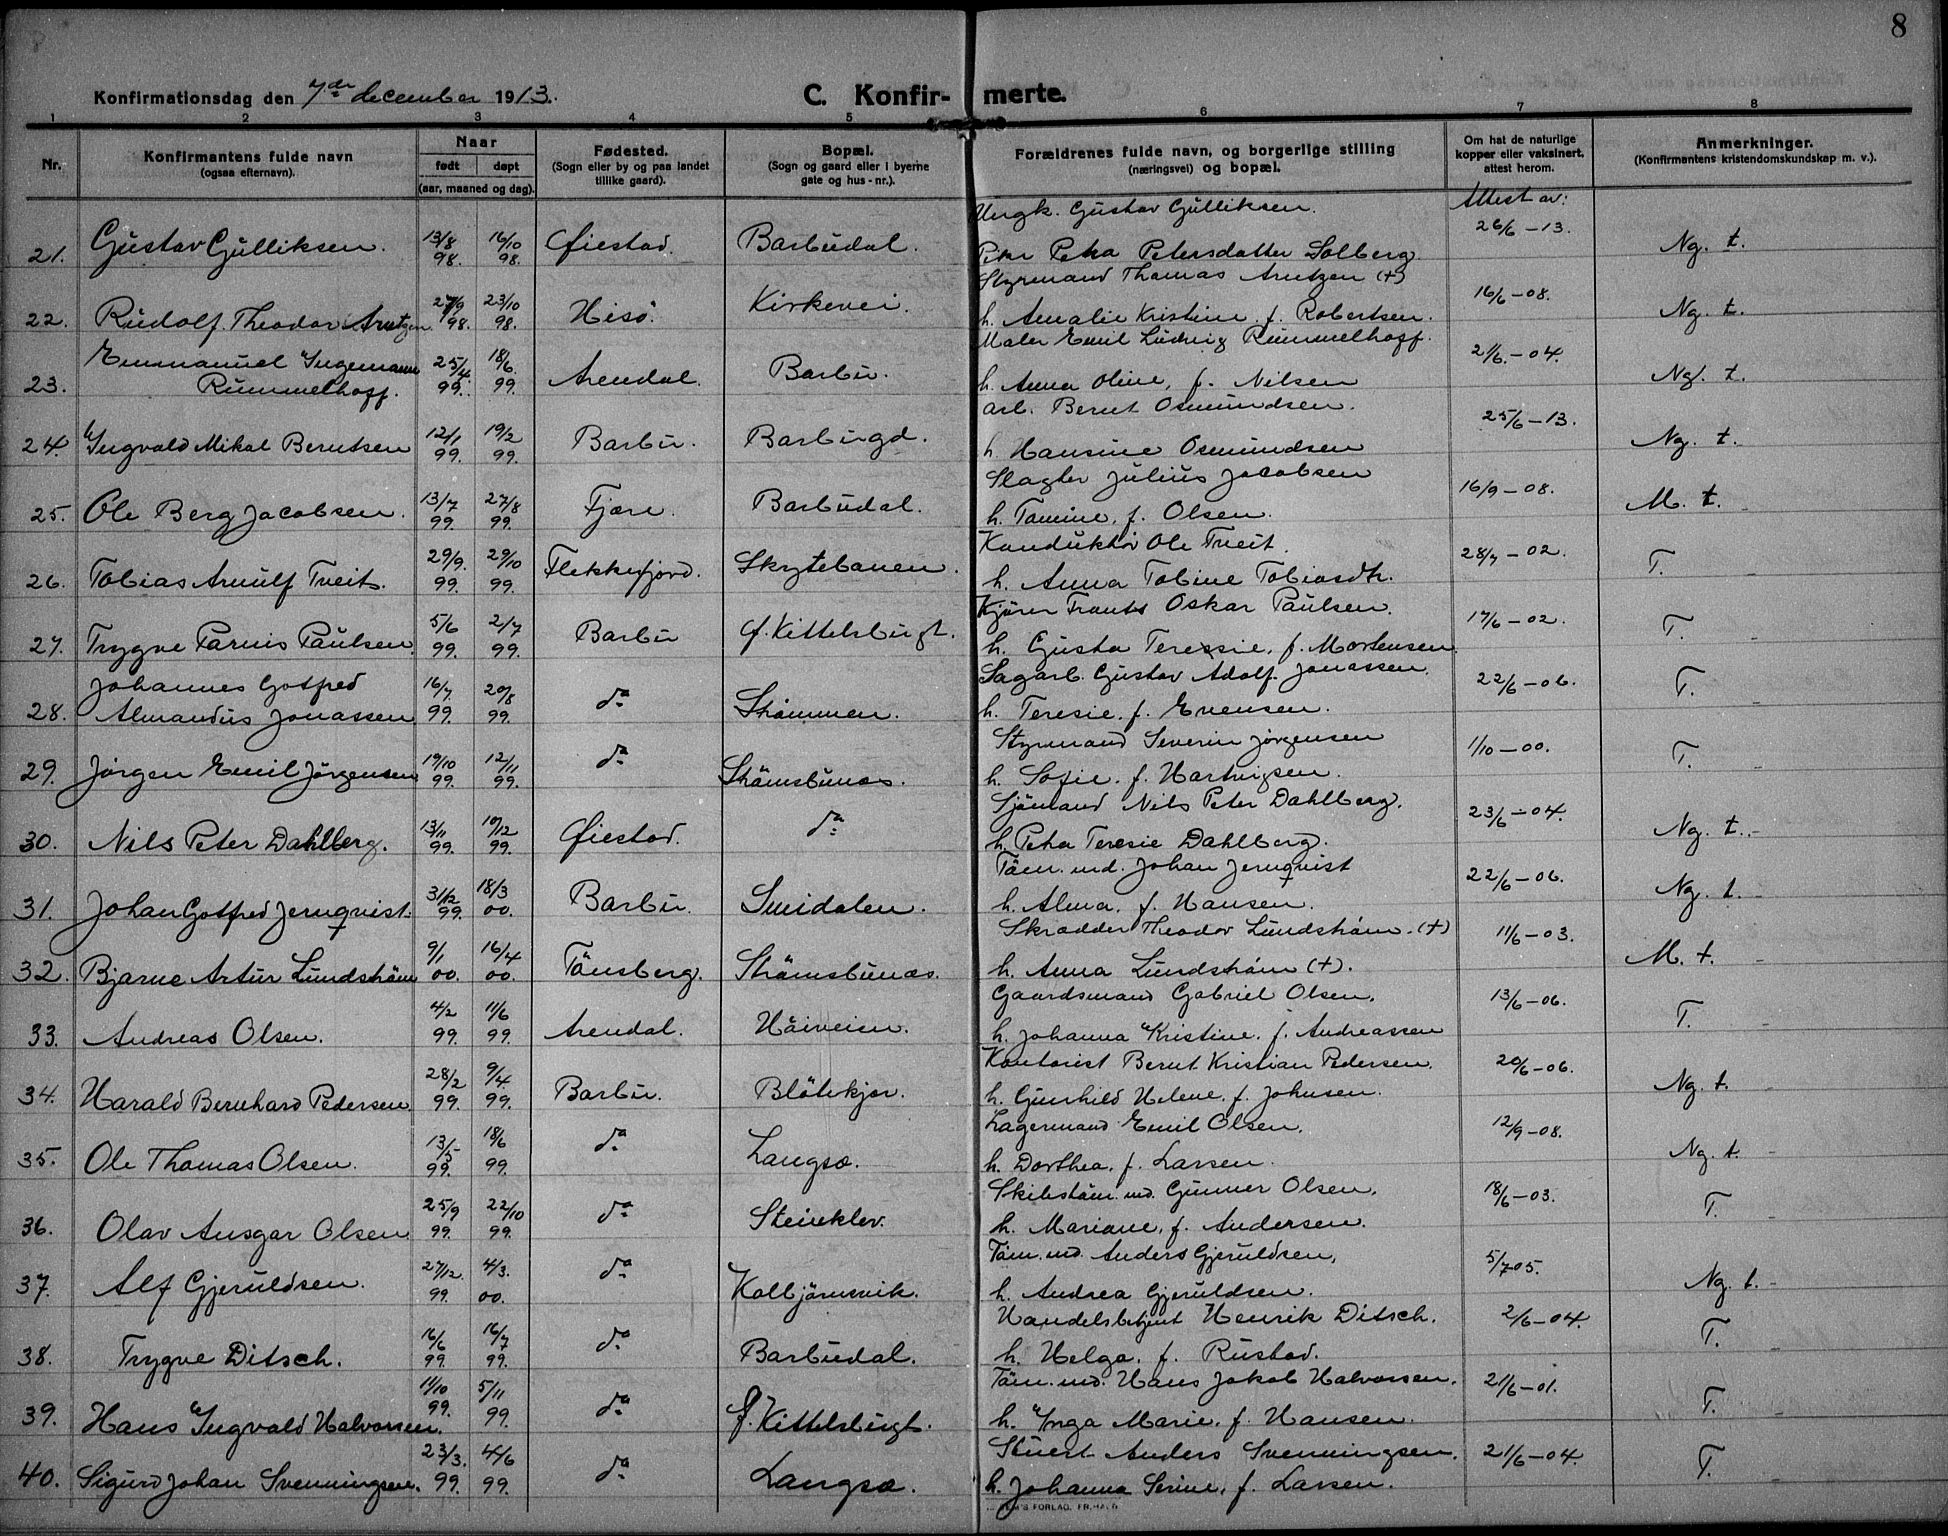 8
Konfirmationsdag den 7de december 1913.
C. Konfirmerte.
1 2 3 4 5 6 7 8
Nr. Konfirmantens fulde navn (ogsaa efternavn). Naar født døpt (aar, maaned og dag). Fødested. (Sogn eller by og paa landet tillike gaard). Bopæl. (Sogn og gaard eller i byerne gate og hus-nr.). Forældrenes fulde navn, og borgerlige stilling (næringsvei) og bopæl. Om hat de naturlige kopper eller vaksinert, attest herom. Anmerkninger. (Konfirmantens kristendomskundskap m. v.).
Attest av:
Ungk. Gustav Gulliksen.
21. Gustav Gulliksen. 13/8 98. 16/10 98. Øiestad. Barbudal. Pike Petra Petersdatter Solberg 26/6-13. Ng. t.
Styrmand Thomas Arntzen (+)
22. Rudolf Theodor Arntzen 27/9 98. 23/10 98. Hisö. Kirkevei. h. Amalie Kristine f. Robertsen. 16/6-08. Ng. t.
Maler Emil Ludvig Rummelhoff.
23. Emmanuel Ingemann Rummelhoff. 25/4 99. 18/6. 99. Arendal. Barbu. h. Anna Oline, f. Nilsen 21/6-04. Ng. t.
arb. Bernt Osmundsen.
24. Ingvald Mikal Berntsen 12/1 99. 19/2 99. Barbu. Barbugd. h. Hansine Osmundsen 25/6-13. Ng. t.
Slagter Julius Jacobsen
25. Ole Berg Jacobsen. 13/7 99. 27/8 99. Fjære. Barbudal. h. Tomine, f. Olsen. 16/9-08. M. t.
Konduktör Ole Tveit.
26. Tobias Arnulf Tveit. 29/9. 99. 29/10 99. Flekkefjord. Skytebanen. h. Anna Tobine Tobiasdtr. 28/7-02. T.
Kjører Frants Oskar Paulsen.
27. Trygve Parnis Paulsen 5/6 99. 2/7 99. Barbu f. Kittelsbugt. h. Gusta Teressie, f. Mortensen 17/6-02. T.
Sagarb. Gustav Adolf Jonassen.
28. Johannes Gotfred Almandus Jonassen 16/7 99. 20/8 99. do Strømmen. h. Teresie, f. Evensen. 22/6-06. T.
Styrmand Severin Jørgensen
29. Jørgen Emil Jørgensen 19/10 99. 12/11 99. do Strømsbunæs. h. Sofie, f. Hartvigsen. 1/10-00. T.
Sjömand Nils Peter Dahlberg.
30. Nils Peter Dahlberg. 13/11 99. 10/12 99. Øiestad. do h. Petra Teresie Dahlberg. 23/6-04. Ng. t.
Töm.md. Johan Jernqvist
31. Johan Gotfred Jernqvist. 31/12 99. 18/3 00. Barbu. Smidalen. h. Alma, f. Hansen. 22/6-06. Ng. t.
Skrædder Theodor Lundström. (+)
32. Bjarne Artur Lundström 9/1 00. 16/4 00. Tönsberg. Strömsbunæs. h. Anna Lundström (+). 11/6-03. M. t.
Gaardsmand Gabriel Olsen.
33. Andreas Olsen. 4/2 99. 11/6 99. Arendal. Höiveien. h. Johanna Kristine, f. Andreassen 13/6-06. T.
Kontorist Bernt Kristian Pedersen.
34. Harald Bernhard Pedersen. 28/2 99. 9/4 99. Barbu. Blötekjær. h. Gunhild Helene, f. Johnsen. 20/6-06. Ng. t.
Lagermand Emil Olsen.
35. Ole Thomas Olsen. 13/5 99. 18/6 99. do Langsæ. h. Dorthea, f. Larsen. 12/9-08. Ng. t.
Skibstöm.md. Gunner Olsen.
36. Olav Ansgar Olsen 25/9 99. 22/10 99. do Steinklev. h. Mariane, f. Andersen. 18/6-03. T.
Töm.md. Anders Gjeruldsen,
37. Alf Gjeruldsen. 27/12. 99. 4/3. 00. do Kolbjörnsvik. h. Andrea Gjeruldsen. 5/7 05. Ng. t.
Handelsbetjent Henrik Ditsch.
38. Trygve Ditsch. 16/6 99. 16/7 99. do Barbudal. h. Helga, f. Rustad. 2/6-04. T.
Töm.md. Hans Jakob Halvorsen.
39. Hans Ingvald Halvorsen. 11/10 99. 5/11 99. do f. Kittelsbugt. h. Inga Marie, f. Hansen. 21/6-01. T.
Stuert Anders Svenningsen.
40. Sigurd Johan Svenningsen. 23/3. 99. 4/6 99. do Langsæ. h. Johanna Serine, f. Larsen. 21/6-04. T.
FORLAG. FR.HALD